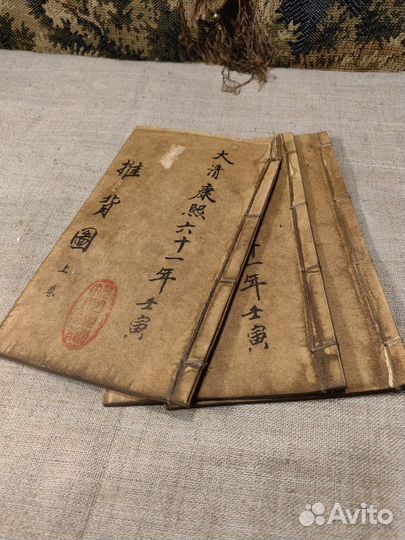 大清康熙六十一年壬寅
推背圖
上卷
十一年壬寅
Avito